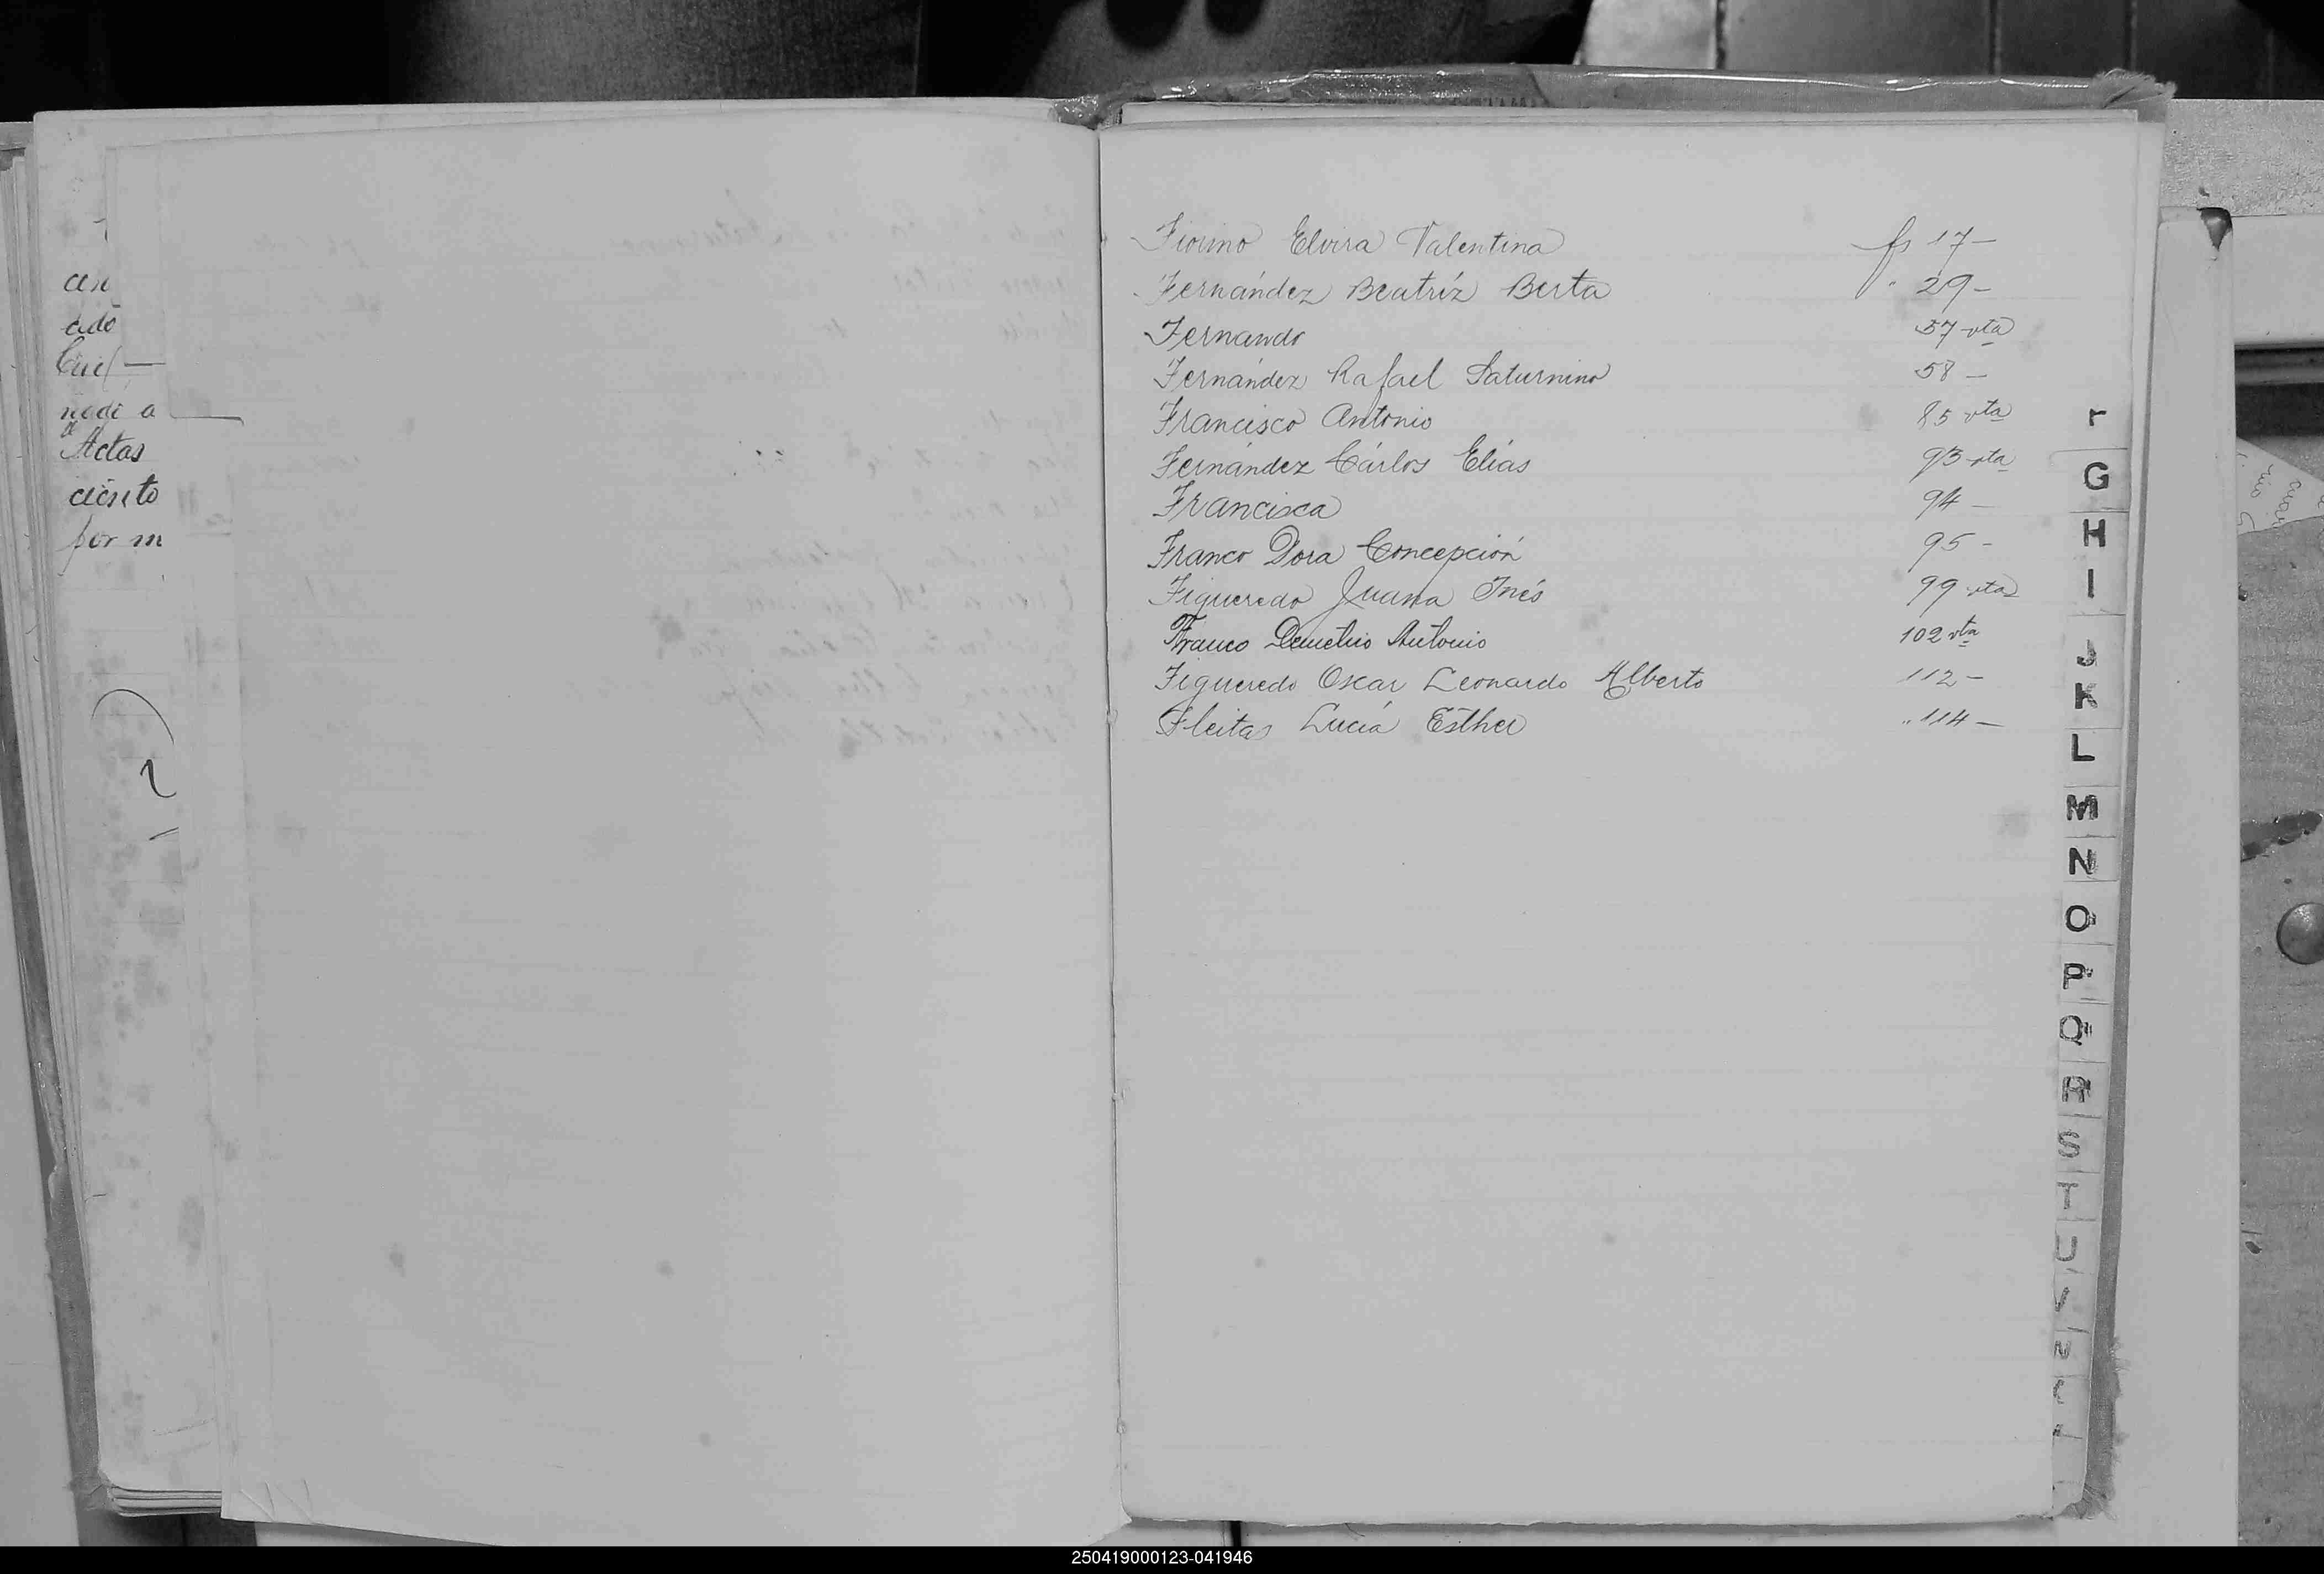 cien
ado
Cuel —
nadi a
Actas
ciento
por m
Fiorino Elvira Valentina fs 17 —
Fernández Beatríz Berta " 29 —
Fernando 57 vta
Fernández Rafael Saturnino 58 —
Francisco Antonio 85 vta
Fernández Cárlos Elías 93 vta
Francisca 94 —
Franco Dora Concepción 95 —
Figueredo Juana Inés 99 vta
Franco Demetrio Antonio 102 vta
Figueredo Oscar Leonardo Alberto 112 —
Fleitas Lucía Esther " 114 —
G
H
I
J
K
L
M
N
O
P
Q
R
S
T
U
V
250419000123-041946